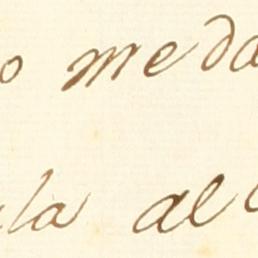 o meda
la al